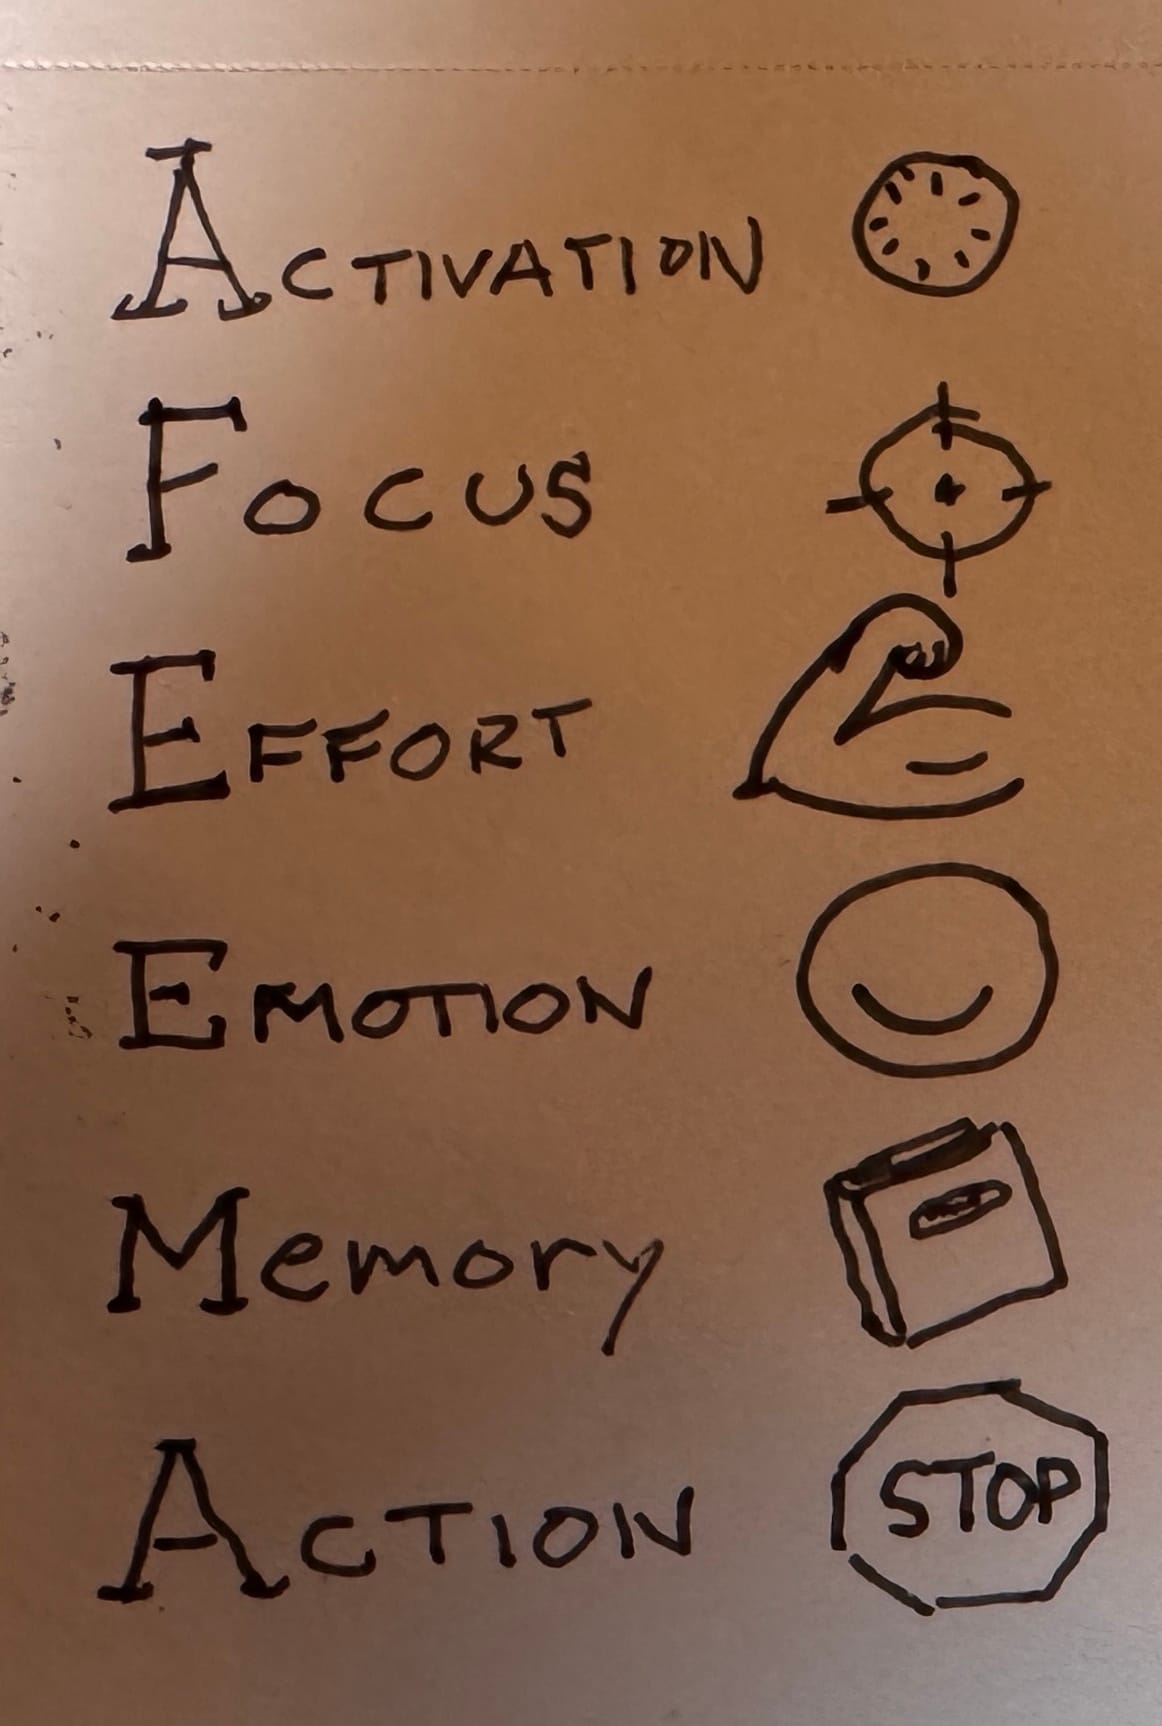 ACTIVATION
FOCUS
EFFORT
EMOTION
Memory
ACTION
STOP